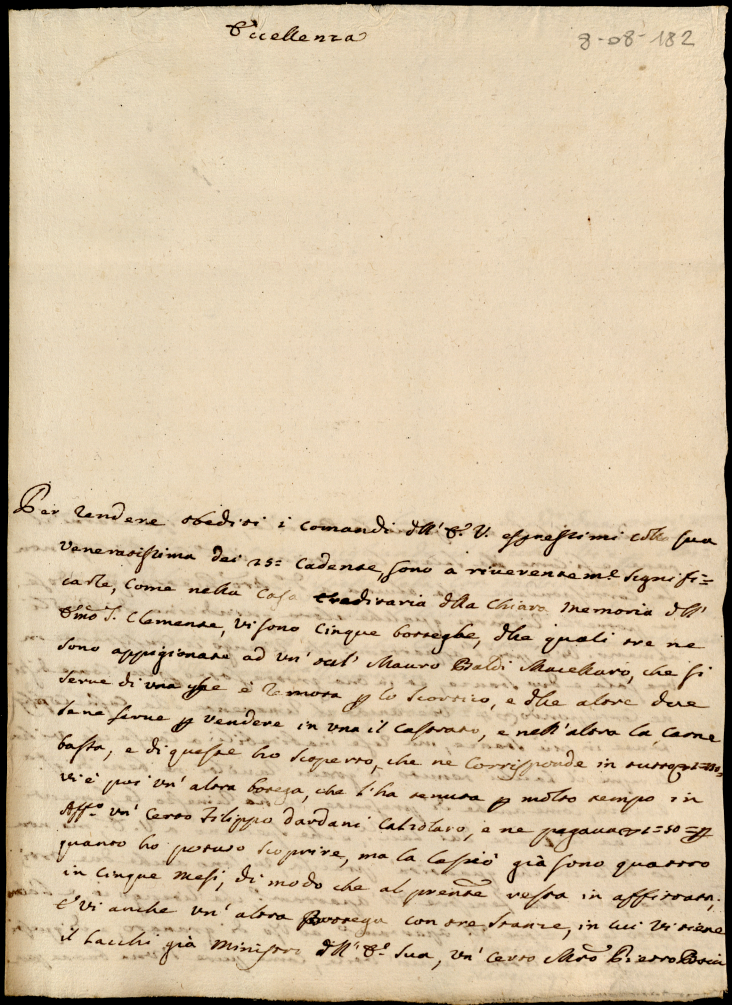 Eccellenza
8-08-182
Per rendere obediti i comandi dll' E.ª V. espressimi colla sua
veneratissima dei 25: Cadente, sono a riverentem.e signifi=
carle, come nella Casa ereditaria dlla Chiara Memoria dll'
Em̃o S. Clemente, vi sono Cinque botteghe, dlle quali tre ne
sono appigionate ad un' tal' Mauro Baldi Macellaro, che si
serve di una che è remota p lo scortico, e dlle altre due
se ne serve p vendere in una il Castrato, e nell'altra la Carne
bassa, e di queste ho scoperto, che ne corrisponde in tutto
vi è poi un' altra botega, che l'ha tenuta p molto tempo in
Aff.º un' certo Filippo Dardani Calzolaro, e ne pagava 50= p
quanto ho potuto scoprire, ma la lasciò già sono quattro
in cinque mesi, di modo che al prens̃te resta in affittata;
E' vi anche un' altra Bottega con tre stanze, in cui vi tiene
il Sacchi già Ministro dll' E.ª Sua, un' certo Mr̃o Pietro